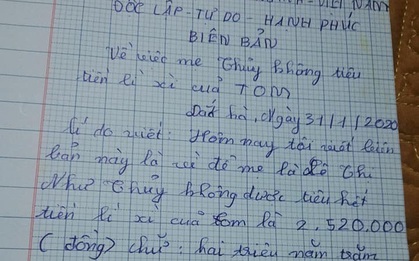 VIỆT NAM
ĐỘC LẬP - TỰ DO - HẠNH PHÚC
BIÊN BẢN
Về việc mẹ Thủy không tiêu
tiền lì xì của TOM
Đất hà, Ngày 31/1/2020
Lí do viết: Hôm nay tôi viết biên
bản này là vì để mẹ là Lê Thị
Như Thủy không được tiêu hết
tiền lì xì của tom là 2,520.000
(đồng) chữ: hai triệu năm trăm